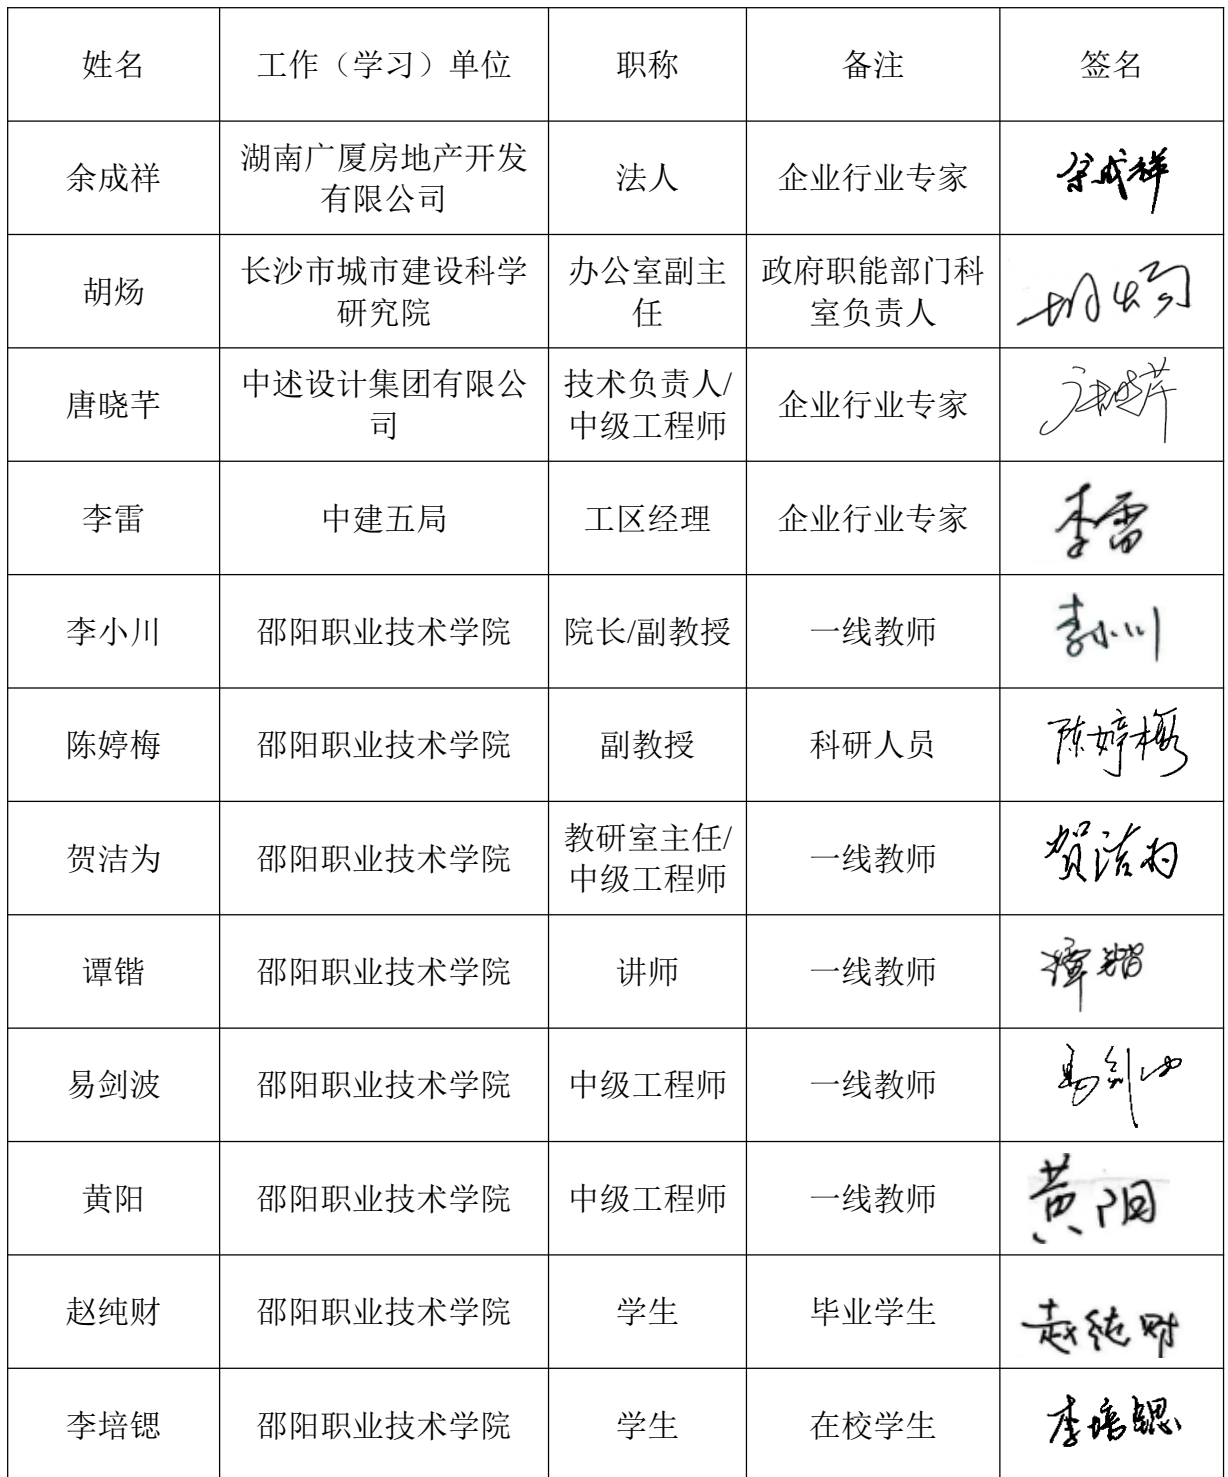 姓名 工作（学习）单位 职称 备注 签名
余成祥 湖南广厦房地产开发有限公司 法人 企业行业专家 余成祥
胡炀 长沙市城市建设科学研究院 办公室副主任 政府职能部门科室负责人 胡炀
唐晓芊 中述设计集团有限公司 技术负责人/中级工程师 企业行业专家 唐晓芊
李雷 中建五局 工区经理 企业行业专家 李雷
李小川 邵阳职业技术学院 院长/副教授 一线教师 李小川
陈婷梅 邵阳职业技术学院 副教授 科研人员 陈婷梅
贺洁为 邵阳职业技术学院 教研室主任/中级工程师 一线教师 贺洁为
谭锴 邵阳职业技术学院 讲师 一线教师 谭锴
易剑波 邵阳职业技术学院 中级工程师 一线教师 易剑波
黄阳 邵阳职业技术学院 中级工程师 一线教师 黄阳
赵纯财 邵阳职业技术学院 学生 毕业学生 赵纯财
李培锶 邵阳职业技术学院 学生 在校学生 李培锶